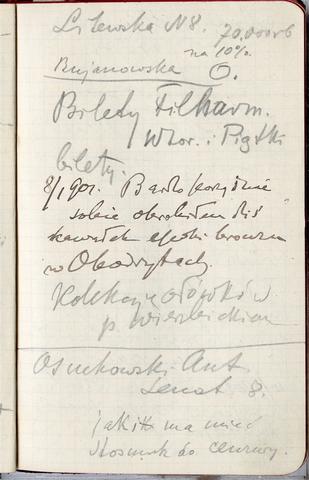 Litewska N8. 70.000 rb
na 10%.
Bujanowska O.
Bilety Filharm.
Wtor. i Piątki
bilety.
8/1 901. Bardzo porządnie
sobie obrobiłem dziś
kawałek
w Obodrytach.
Kolekcyę ołówków
p Wierzbickiem
Osuchowski Ant.
Senat 8.
jaki ma mieć
stosunek do cenzury.